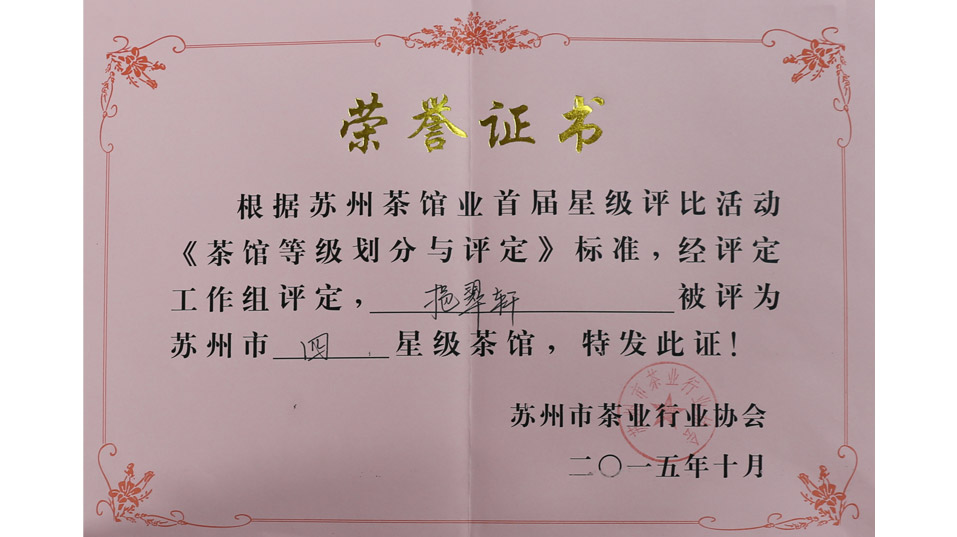 荣誉证书
根据苏州茶馆业首届星级评比活动
《茶馆等级划分与评定》标准，经评定
工作组评定，挹翠轩被评为
苏州市四星级茶馆，特发此证！
苏州市茶业行业协会
二〇一五年十月
苏州市茶业行业协会